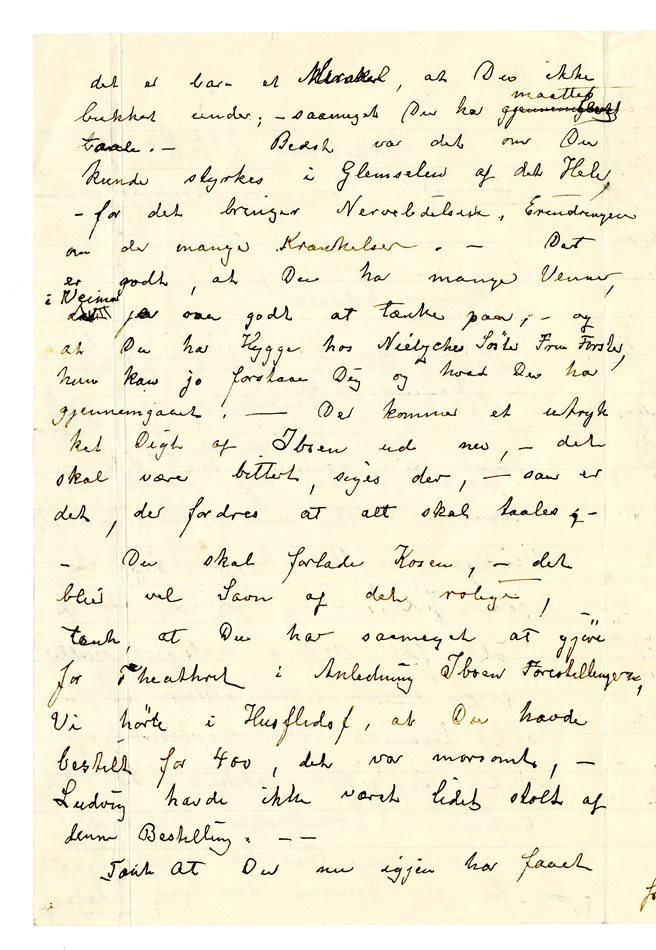 det er bare et Mirakel, at Du ikke
bukket under; – saameget Du har maattet
taale. – Bedst var det om Du
kunde styrkes i Glemselen af det Hele
– for det bringer Nervelidelser, Erindringen
om de mange Krænkelser. – Det
er godt, at Du har mange Venner,
i Weimar
ja var godt at tænke paa; – og
at Du har Hygge hos Nietzches Søster Fru Förster,
hun kan jo forstaae Dig og hvad Du har
gjennemgaaet. — Der kommer et utryk
ket Digt af Ibsen ud nu, – det
skal være bittert, siges der, – saa er
det, der fordres at alt skal taales; –
– Du skal forlade Kosen, – det
blir vel Savn af det rolige! –
tænk, at Du har saameget at gjøre
for Theathret i Anledning Ibsen Forestillingen,
Vi hørte i Husfliden, at Du havde
bestilt for 400, det var morsomt, –
Ludvig havde ikke været lidet stolt af
denne Bestilling. – –
Tænk at Du nu igjen har faaet